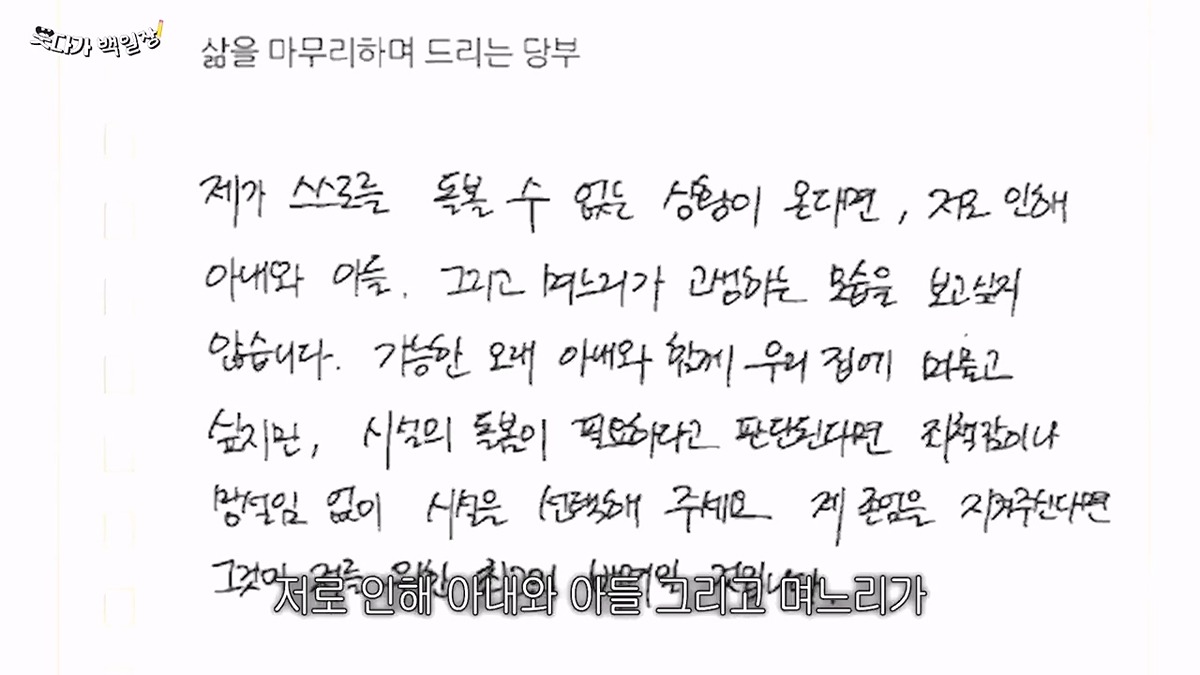 웃다가 백일장
삶을 마무리하며 드리는 당부
제가 스스로를 돌볼 수 없는 상황이 온다면, 저로 인해
아내와 아들. 그리고 며느리가 고생하는 모습을 보고싶지
않습니다. 가능한 오래 아내와 함께 우리 집에 머물고
싶지만, 시설의 돌봄이 필요하다고 판단된다면 죄책감이나
망설임 없이 시설을 선택해 주세요. 제 존엄을 지켜주신다면
그것이 저를 위한 최고의 배려일 것입니다.
저로 인해 아내와 아들 그리고 며느리가